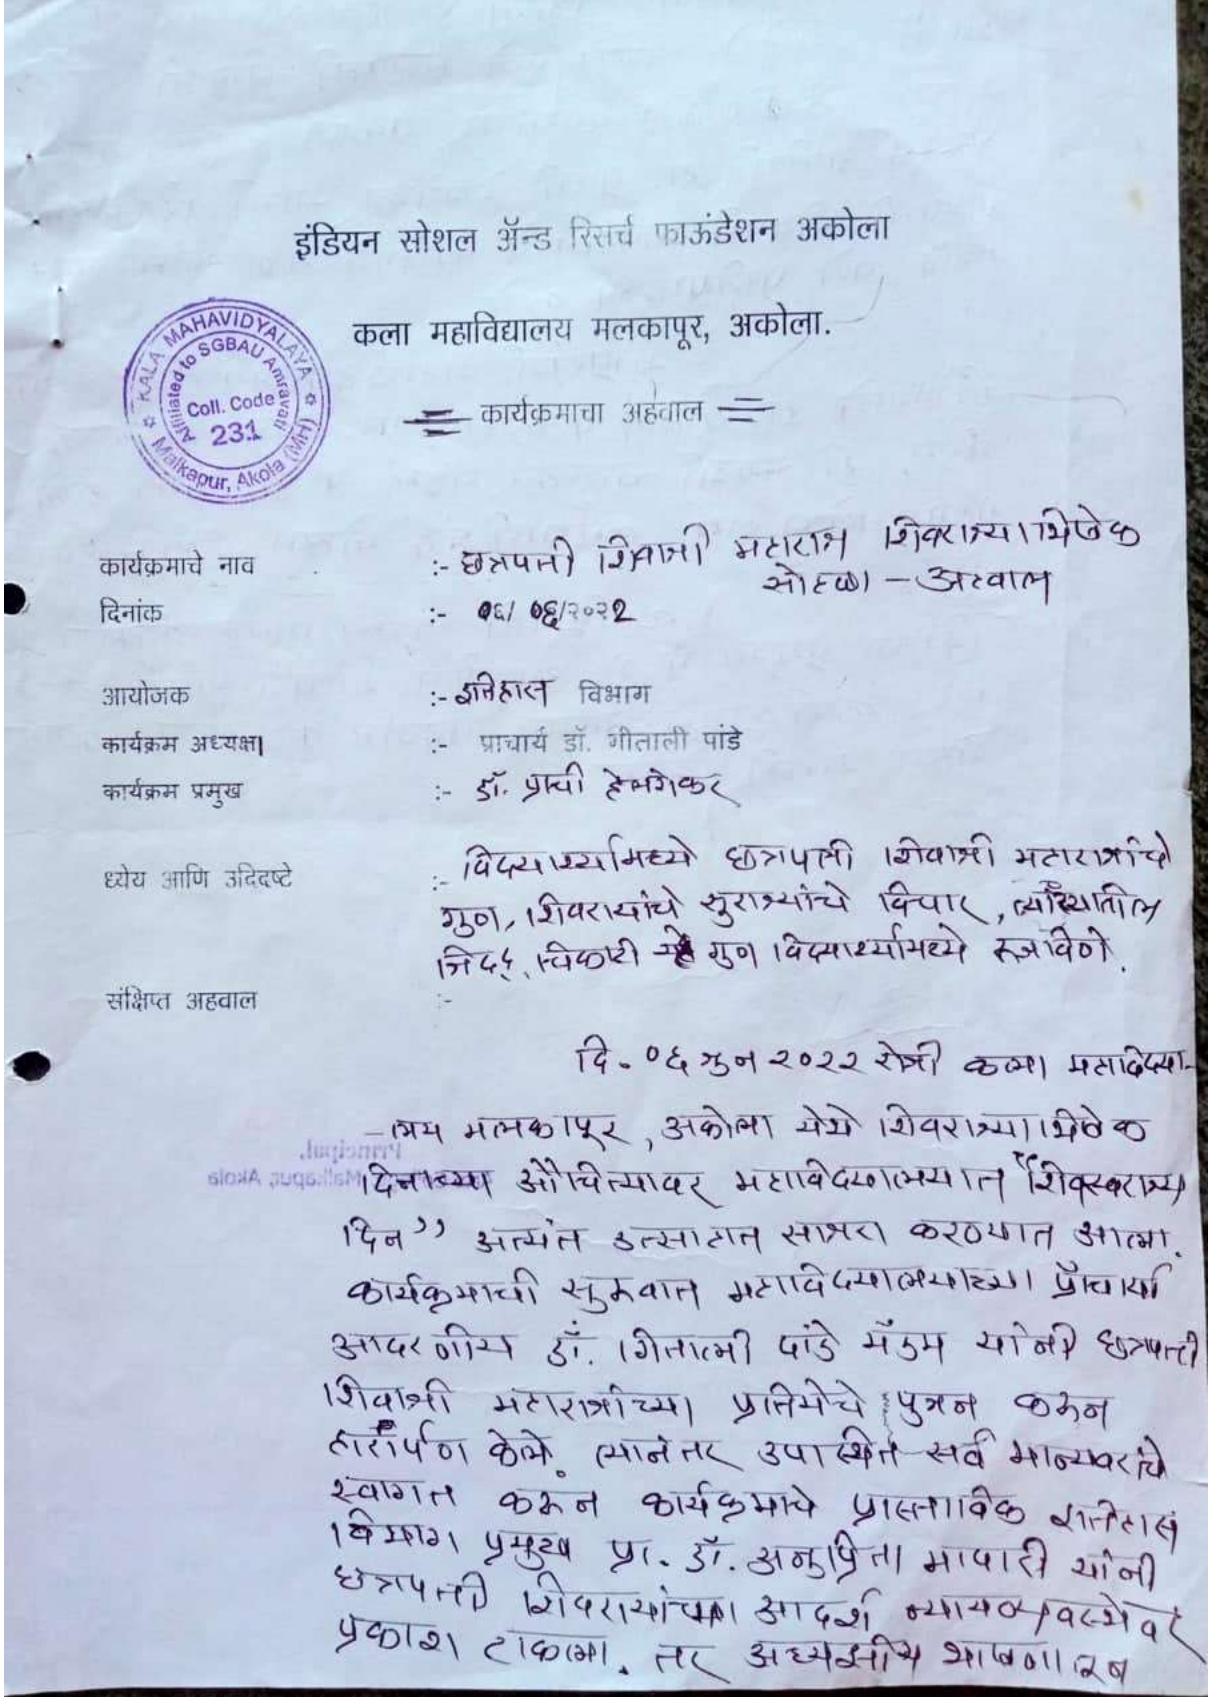 इंडियन सोशल ॲन्ड रिसर्च फाऊंडेशन अकोला
कला महाविद्यालय मलकापूर, अकोला.
KALA MAHAVIDYALAYA
Affiliated to SGBAU Amravati
Coll. Code
231
Malkapur, Akola (MH)
कार्यक्रमाचा अहवाल
कार्यक्रमाचे नाव :- छत्रपती शिवाजी महाराज शिवराज्याभिषेक
सोहळा - अहवाल
दिनांक :- ०६/ ०६/२०२२
आयोजक :- इतिहास विभाग
कार्यक्रम अध्यक्षा :- प्राचार्य डॉ. गीताली पांडे
कार्यक्रम प्रमुख :- डॉ. प्राची
ध्येय आणि उदिदष्टे :- विद्यार्थ्यामध्ये छत्रपती शिवाजी महाराजांचे
गुण, शिवरायांचे सुराज्यांचे विचार, त्यांच्यातील
जिदद्, चिकाटी हे गुण विद्यार्थ्यामध्ये रूजविणे.
संक्षिप्त अहवाल :-
दि. ०६ जुन २०२२ रोजी कला महाविद्या-
-लय मलकापूर, अकोला येथे शिवराज्याभिषेक
Principal,
Malkapur, Akola
दिनाच्या औचित्यावर महाविदयालयात "शिवस्वराज्य
दिन" अत्यंत उत्साहात साजरा करण्यात आला.
कार्यक्रमाची सुरूवात महाविदयालयाच्या प्राचार्या
आदरणीय डॉ. गिताली पांडे मॅडम यांनी छत्रपती
शिवाजी महाराजांच्या प्रतिमेचे पुजन करून
हारार्पण केले. त्यानंतर उपास्थित सर्व मान्यवरांचे
स्वागत करून कार्यक्रमाचे प्रास्ताविक इतिहास
विभाग प्रमुख प्रा. डॉ. अनुप्रिता मापारी यांनी
छत्रपती शिवरायांच्या आदर्श न्यायव्यवस्थेवर
प्रकाश टाकला. तर अध्यक्षीय